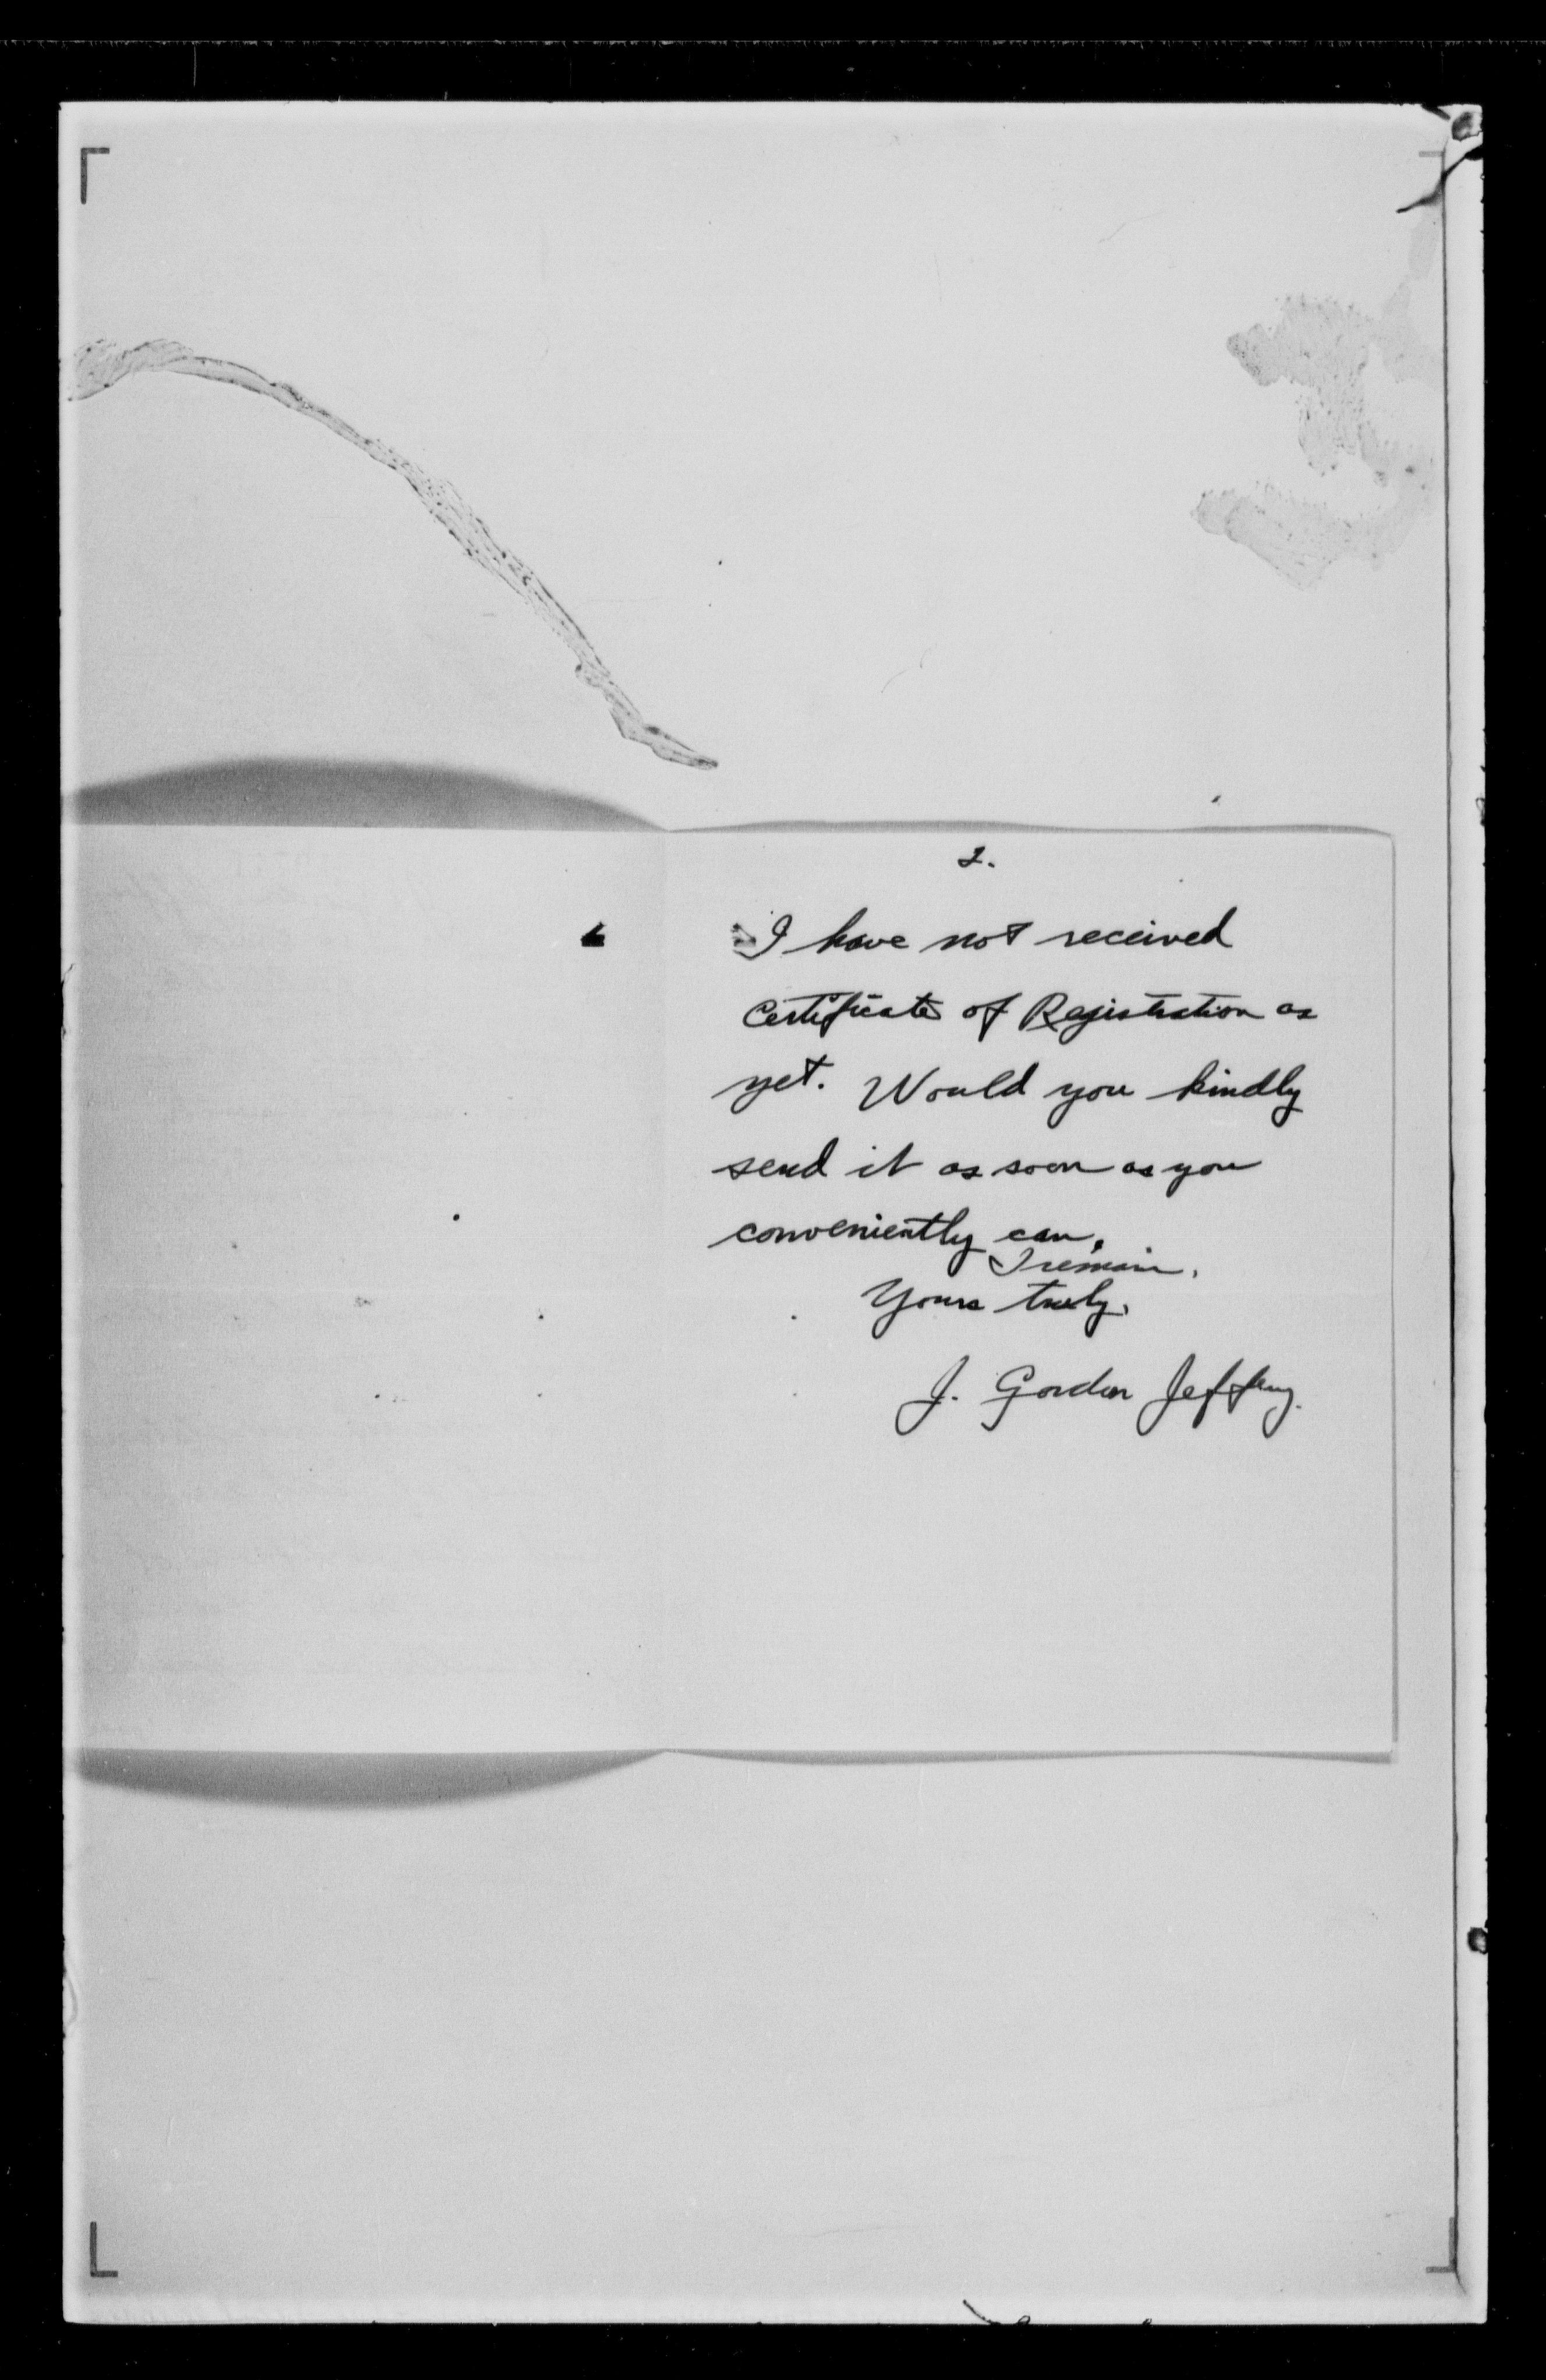 2.
I have not received
Certificate of Registration as
yet. Would you kindly
send it as soon as you
conveniently can,
I remain,
Yours truly,
J. Gordon Jeffrey.